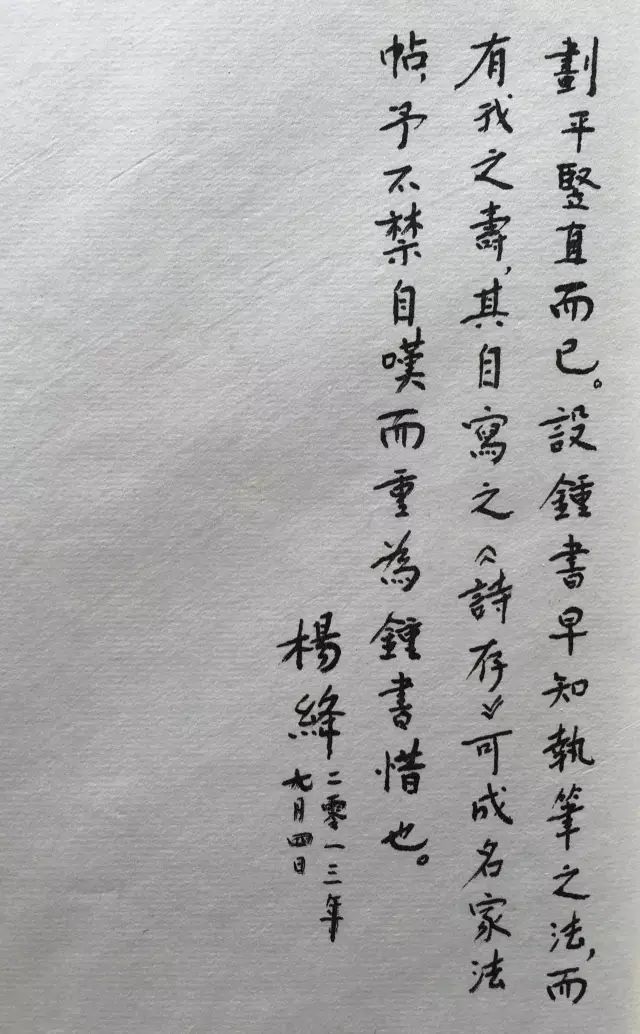 劃平豎直而已。設鍾書早知執筆之法,而
有我之壽,其自寫之《詩存》可成名家法
帖,予不禁自嘆而重為鍾書惜也。
楊絳
二零一三年
九月四日